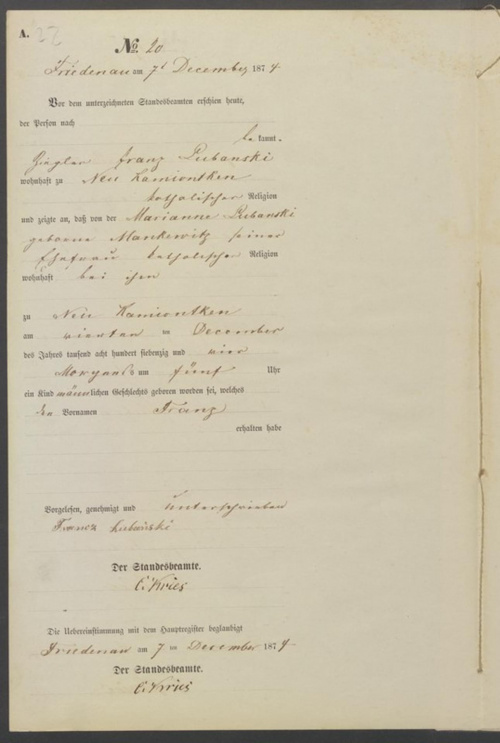 A.
№ 20
Friedenau am 7t December 1874
Vor dem unterzeichneten Standesbeamten erschien heute,
der Person nach
bekannt.
Ziegler Franz Lubanski
wohnhaft zu Neu Kamiontken
katholischer Religion
und zeigte an, daß von der Marianne Lubanski
geborne Mankewitz seiner
Ehefrau katholischer Religion
wohnhaft bei ihm
zu Neu Kamiontken
am vierten ten December
des Jahres tausend acht hundert siebenzig und vier
Morgends um fünf Uhr
ein Kind männlichen Geschlechts geboren worden sei, welches
den Vornamen Franz
erhalten habe
Vorgelesen, genehmigt und unterschrieben
Franz Lubański
Der Standesbeamte.
C. Kries
Die Uebereinstimmung mit dem Hauptregister beglaubigt
Friedenau am 7 ten December 1874
Der Standesbeamte.
C. Kries